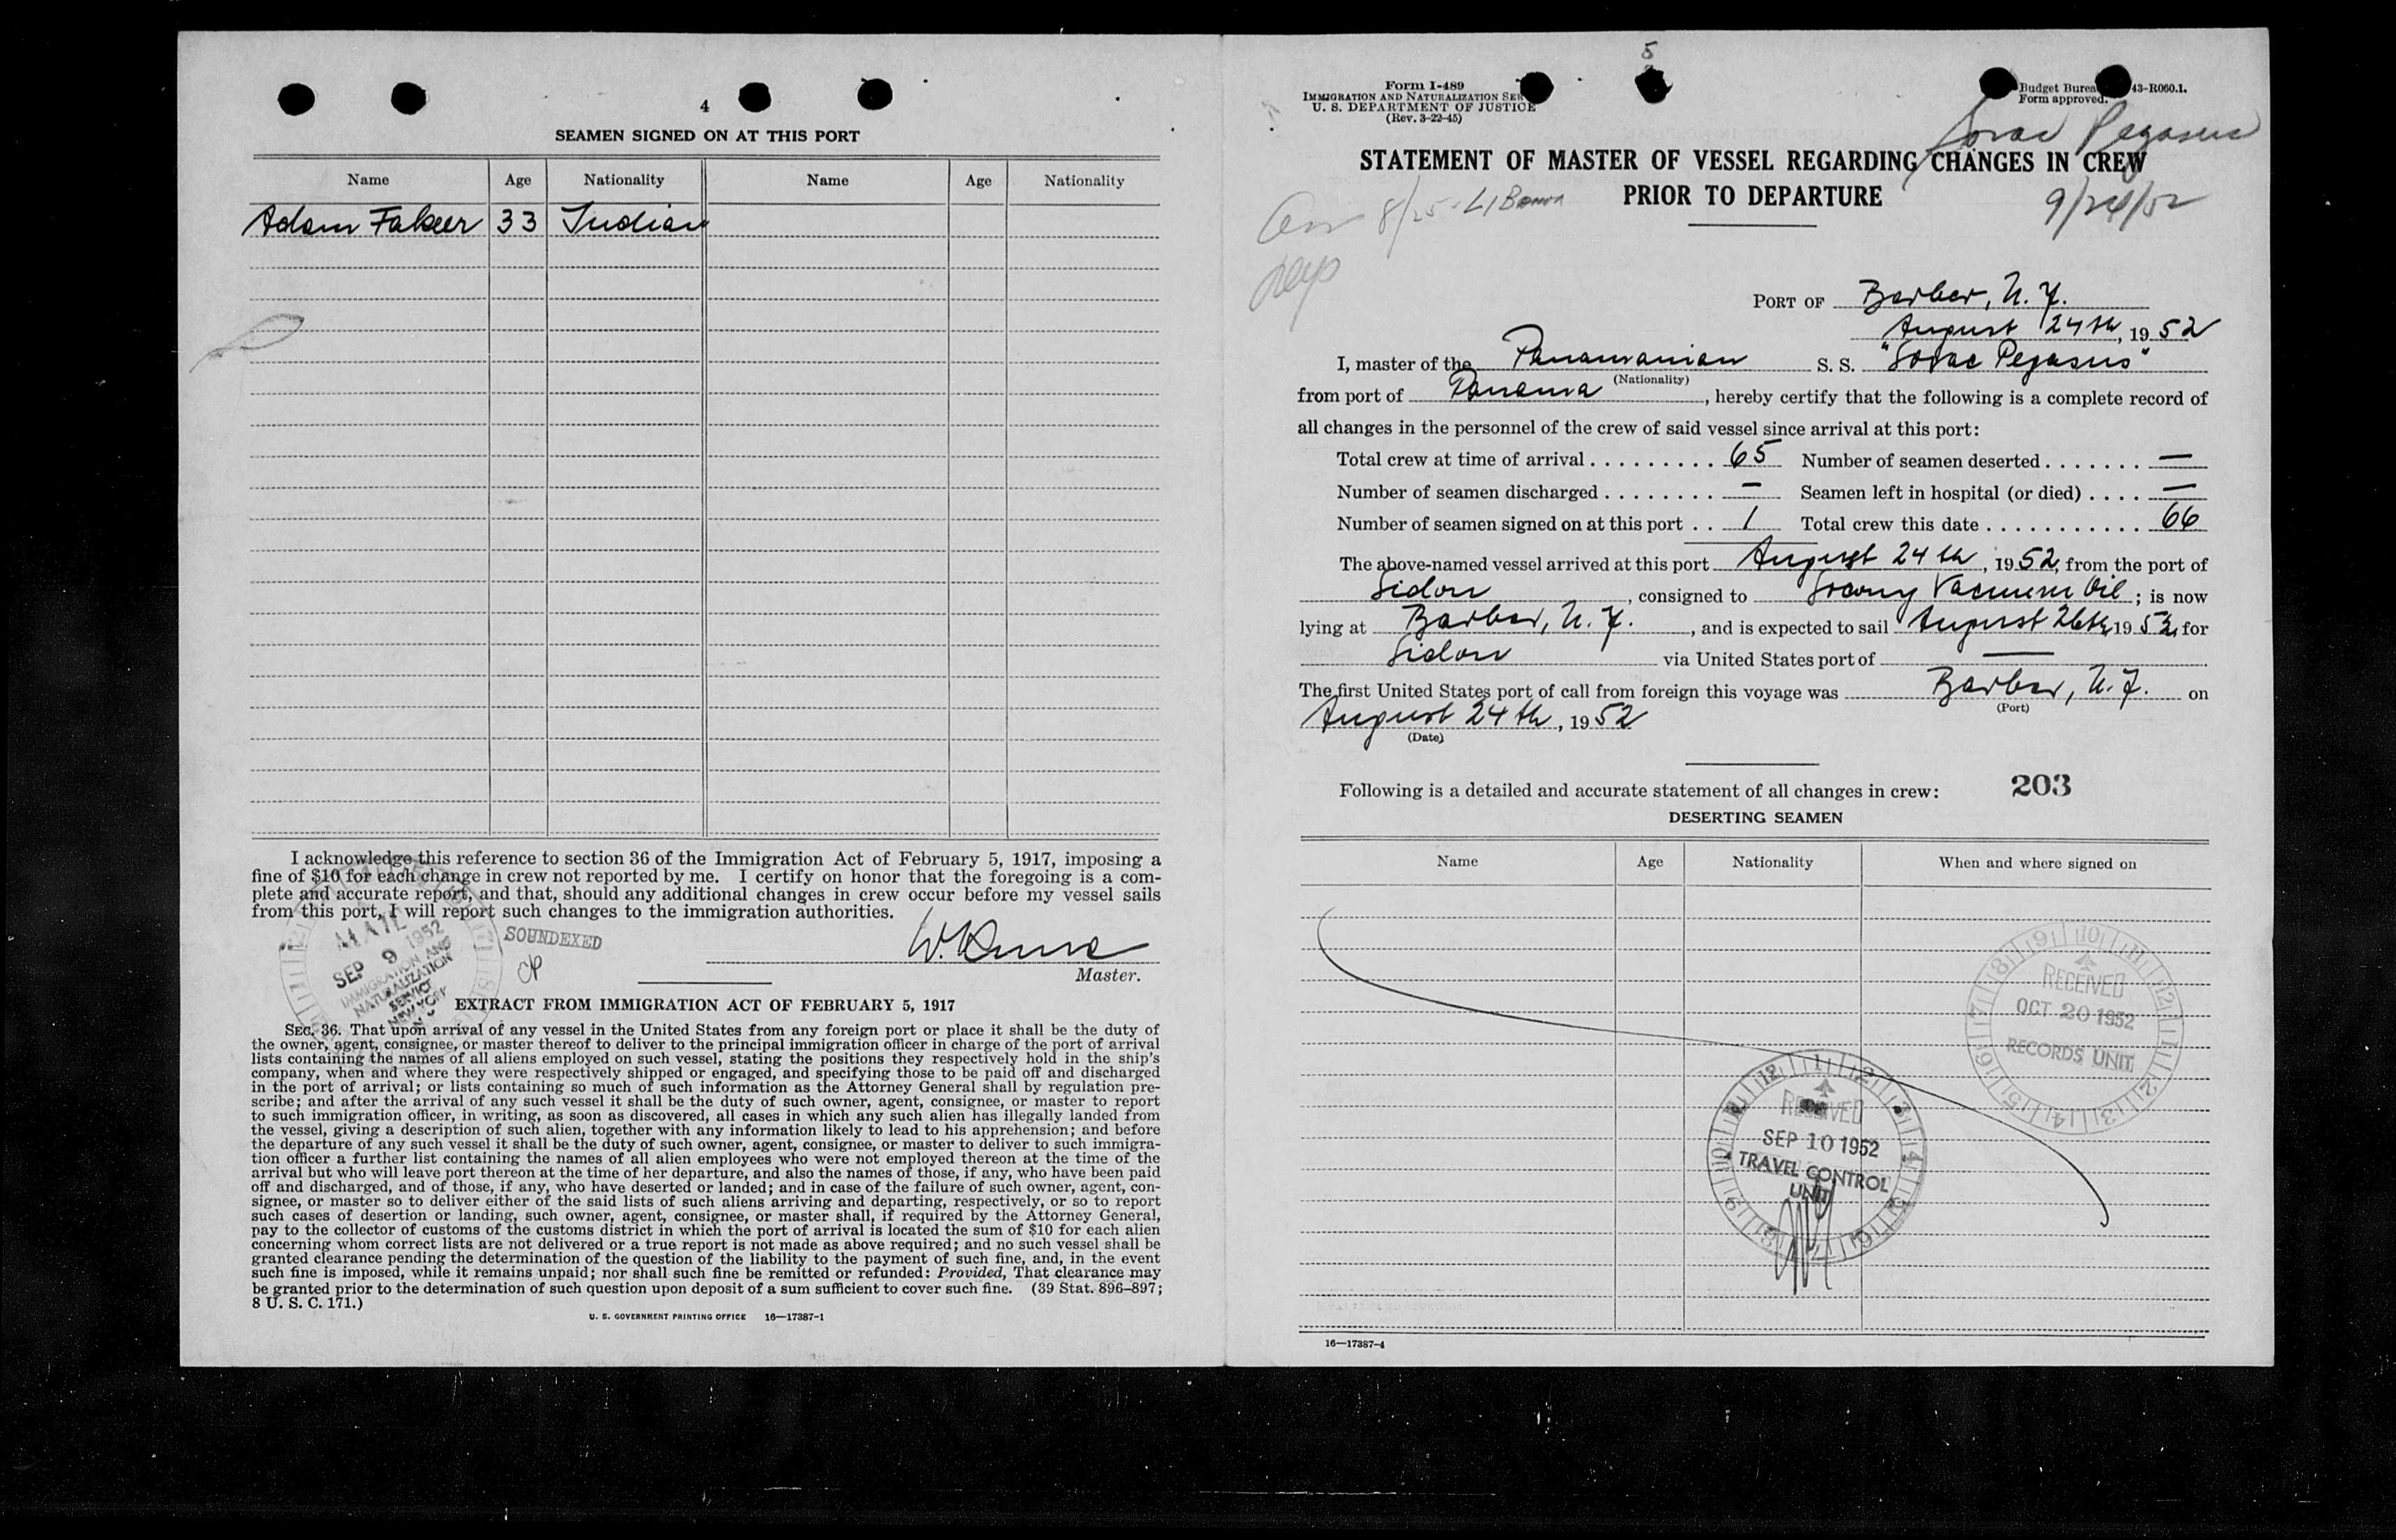 4
SEAMEN SIGNED ON AT THIS PORT
Name Age Nationality Name Age Nationality
Adam Fakeer 33 Indian
I acknowledge this reference to section 36 of the Immigration Act of February 5, 1917, imposing a
fine of $10 for each change in crew not reported by me. I certify on honor that the foregoing is a com-
plete and accurate report, and that, should any additional changes in crew occur before my vessel sails
from this port, I will report such changes to the immigration authorities.
MAIL
SEP 9 1952
IMMIGRATION AND
NATURALIZATION
SERVICE
NEW YORK
SOUNDEXED
Master.
EXTRACT FROM IMMIGRATION ACT OF FEBRUARY 5, 1917
SEC. 36. That upon arrival of any vessel in the United States from any foreign port or place it shall be the duty of
the owner, agent, consignee, or master thereof to deliver to the principal immigration officer in charge of the port of arrival
lists containing the names of all aliens employed on such vessel, stating the positions they respectively hold in the ship's
company, when and where they were respectively shipped or engaged, and specifying those to be paid off and discharged
in the port of arrival; or lists containing so much of such information as the Attorney General shall by regulation pre-
scribe; and after the arrival of any such vessel it shall be the duty of such owner, agent, consignee, or master to report
to such immigration officer, in writing, as soon as discovered, all cases in which any such alien has illegally landed from
the vessel, giving a description of such alien, together with any information likely to lead to his apprehension; and before
the departure of any such vessel it shall be the duty of such owner, agent, consignee, or master to deliver to such immigra-
tion officer a further list containing the names of all alien employees who were not employed thereon at the time of the
arrival but who will leave port thereon at the time of her departure, and also the names of those, if any, who have been paid
off and discharged, and of those, if any, who have deserted or landed; and in case of the failure of such owner, agent, con-
signee, or master so to deliver either of the said lists of such aliens arriving and departing, respectively, or so to report
such cases of desertion or landing, such owner, agent, consignee, or master shall, if required by the Attorney General,
pay to the collector of customs of the customs district in which the port of arrival is located the sum of $10 for each alien
concerning whom correct lists are not delivered or a true report is not made as above required; and no such vessel shall be
granted clearance pending the determination of the question of the liability to the payment of such fine, and, in the event
such fine is imposed, while it remains unpaid; nor shall such fine be remitted or refunded: Provided, That clearance may
be granted prior to the determination of such question upon deposit of a sum sufficient to cover such fine. (39 Stat. 896–897;
8 U. S. C. 171.)
U. S. GOVERNMENT PRINTING OFFICE 16—17387-1
5
Form I-489
IMMIGRATION AND NATURALIZATION SER
U. S. DEPARTMENT OF JUSTICE
(Rev. 3-22-45)
Budget Burea 43-R060.1.
Form approved.
Sovac Pegasus
STATEMENT OF MASTER OF VESSEL REGARDING CHANGES IN CREW
PRIOR TO DEPARTURE
9/24/52
8/25
PORT OF Barber, N. J.
August 24th, 1952
I, master of the Panamanian S. S. "Sovac Pegasus"
(Nationality)
from port of Panama, hereby certify that the following is a complete record of
all changes in the personnel of the crew of said vessel since arrival at this port:
Total crew at time of arrival . . . . . . . . . 65 Number of seamen deserted . . . . . . . —
Number of seamen discharged . . . . . . . . — Seamen left in hospital (or died) . . . . —
Number of seamen signed on at this port . . 1 Total crew this date . . . . . . . . . . . 66
The above-named vessel arrived at this port August 24th, 1952, from the port of
Sidon, consigned to Socony Vacuum Oil; is now
lying at Barber, N. J., and is expected to sail August 26th, 1952, for
Sidon via United States port of —
The first United States port of call from foreign this voyage was Barber, N. J. on
(Port)
August 24th, 1952
(Date)
Following is a detailed and accurate statement of all changes in crew: 203
DESERTING SEAMEN
Name Age Nationality When and where signed on
RECEIVED
OCT 20 1952
RECORDS UNIT
RECEIVED
SEP 10 1952
TRAVEL CONTROL
UNIT
16—17387-4